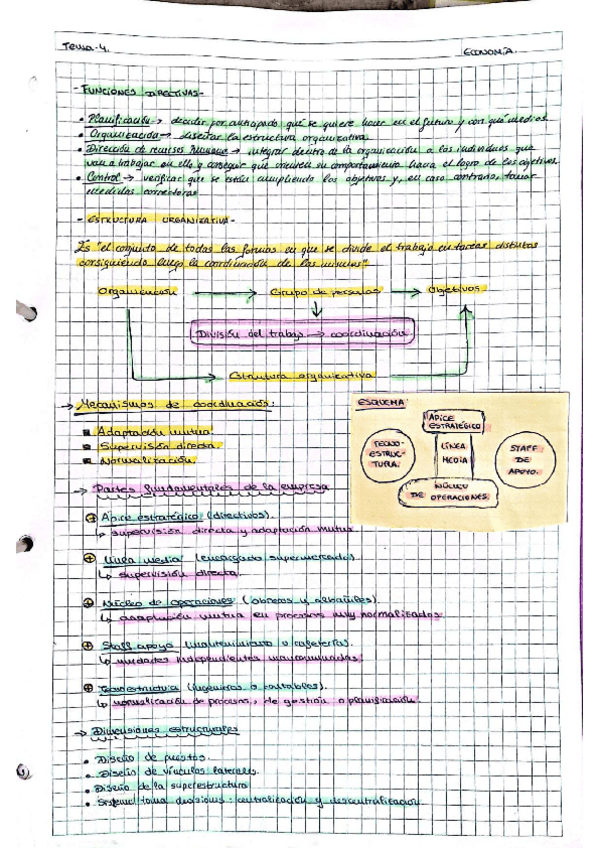 Tema-4.
ECONOMÍA.
- FUNCIONES DIRECTIVAS-
• Planificación -> decidir por anticipado qué se quiere hacer en el futuro y con qué medios.
• Organización -> diseñar la estructura organizativa.
• Dirección de recursos humanos -> integrar dentro de la organización a los individuos que
van a trabajar en ella y conseguir que orienten su comportamiento hacia el logro de los objetivos.
• Control -> verificar que se están cumpliendo los objetivos y, en caso contrario, tomar
medidas correctoras
- ESTRUCTURA ORGANIZATIVA -
Es "el conjunto de todas las formas en que se divide el trabajo en tareas distintas
consiguiendo luego la coordinación de las mismas"
Organización -> Grupo de personas -> Objetivos
División del trabajo -> coordinación
Estructura organizativa
-> Mecanismos de coordinación:
Adaptación mutua.
Supervisión directa.
Normalización.
ESQUEMA
ÁPICE
ESTRATÉGICO
TECNO-
ESTRUC-
TURA.
LÍNEA
MEDIA
STAFF
DE
APOYO.
NÚCLEO
DE OPERACIONES
-> Partes fundamentales de la empresa
Ápice estratégico (directivos).
↳ supervisión directa y adaptación mutua
Línea media (encargado supermercado)
↳ supervisión directa
Núcleo de operaciones (obreros y albañiles)
↳ adaptación mutua en procesos muy normalizados
Staff apoyo (mantenimiento o cafetería).
↳ unidades independientes
Tecnoestructura (ingenieros o contables).
↳ normalización de procesos, de gestión o planificación
-> Dimensiones estructurales
• Diseño de puestos.
• Diseño de vínculos laterales.
• Diseño de la superestructura
• Sistema toma decisiones: centralización y descentralización